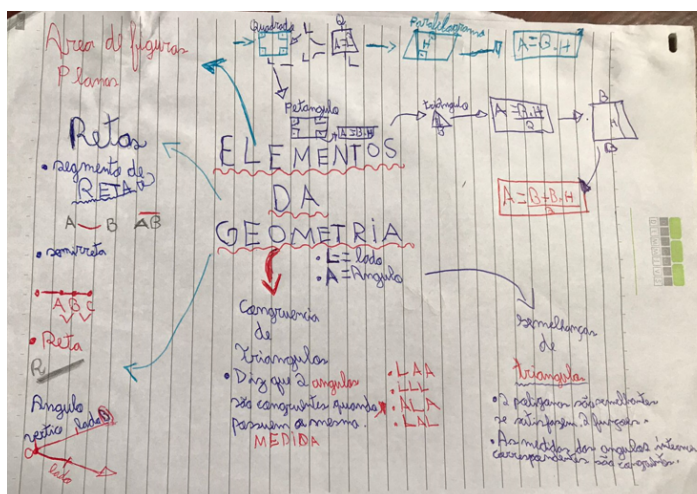 Area de figuras
Planas
Quadrado
L
L
L
Q
A=
L
Paralelogramo
H
B
A=B.H
Retangulo
A=B.H
triângulo
B
A=B.H
2
B
H
B
A=B+B.H
2
Retas
• segmento de
RETA
A B AB
• semirreta
A B C
• Reta
R
Angulo
vertice lado
lado
ELEMENTOS
DA
GEOMETRIA
• L= lado
• A= Angulo
Congruencia
de
triangulos
• Diz que 2 angulos
são congruentes quando
possuem a mesma
MEDIDA
• LAA
• LLL
• ALA
• LAL
semelhanças
de
triangulo
• 2 poligonos são semelhantes
se satisfazem 2 funções.
• As medidas dos angulos internos
correspondentes são congruentes.